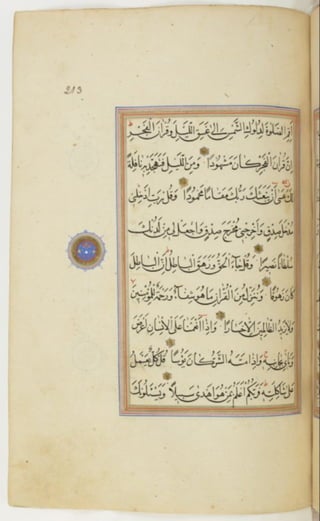 213
أقم الصلوة لدلوك الشمس إلى غسق الليل وقرآن الفجر
إن قرآن الفجر كان مشهودا ومن الليل فتهجد به نافلة
لك عسى أن يبعثك ربك مقاما محمودا وقل رب أدخلني
مدخل صدق وأخرجني مخرج صدق واجعل لي من لدنك
سلطانا نصيرا وقل جاء الحق وزهق الباطل إن الباطل
كان زهوقا وننزل من القرآن ما هو شفاء ورحمة للمؤمنين
ولا يزيد الظالمين إلا خسارا وإذا أنعمنا على الإنسان أعرض
ونأى بجانبه وإذا مسه الشر كان يؤسا قل كل يعمل
على شاكلته فربكم أعلم بمن هو أهدى سبيلا ويسئلونك